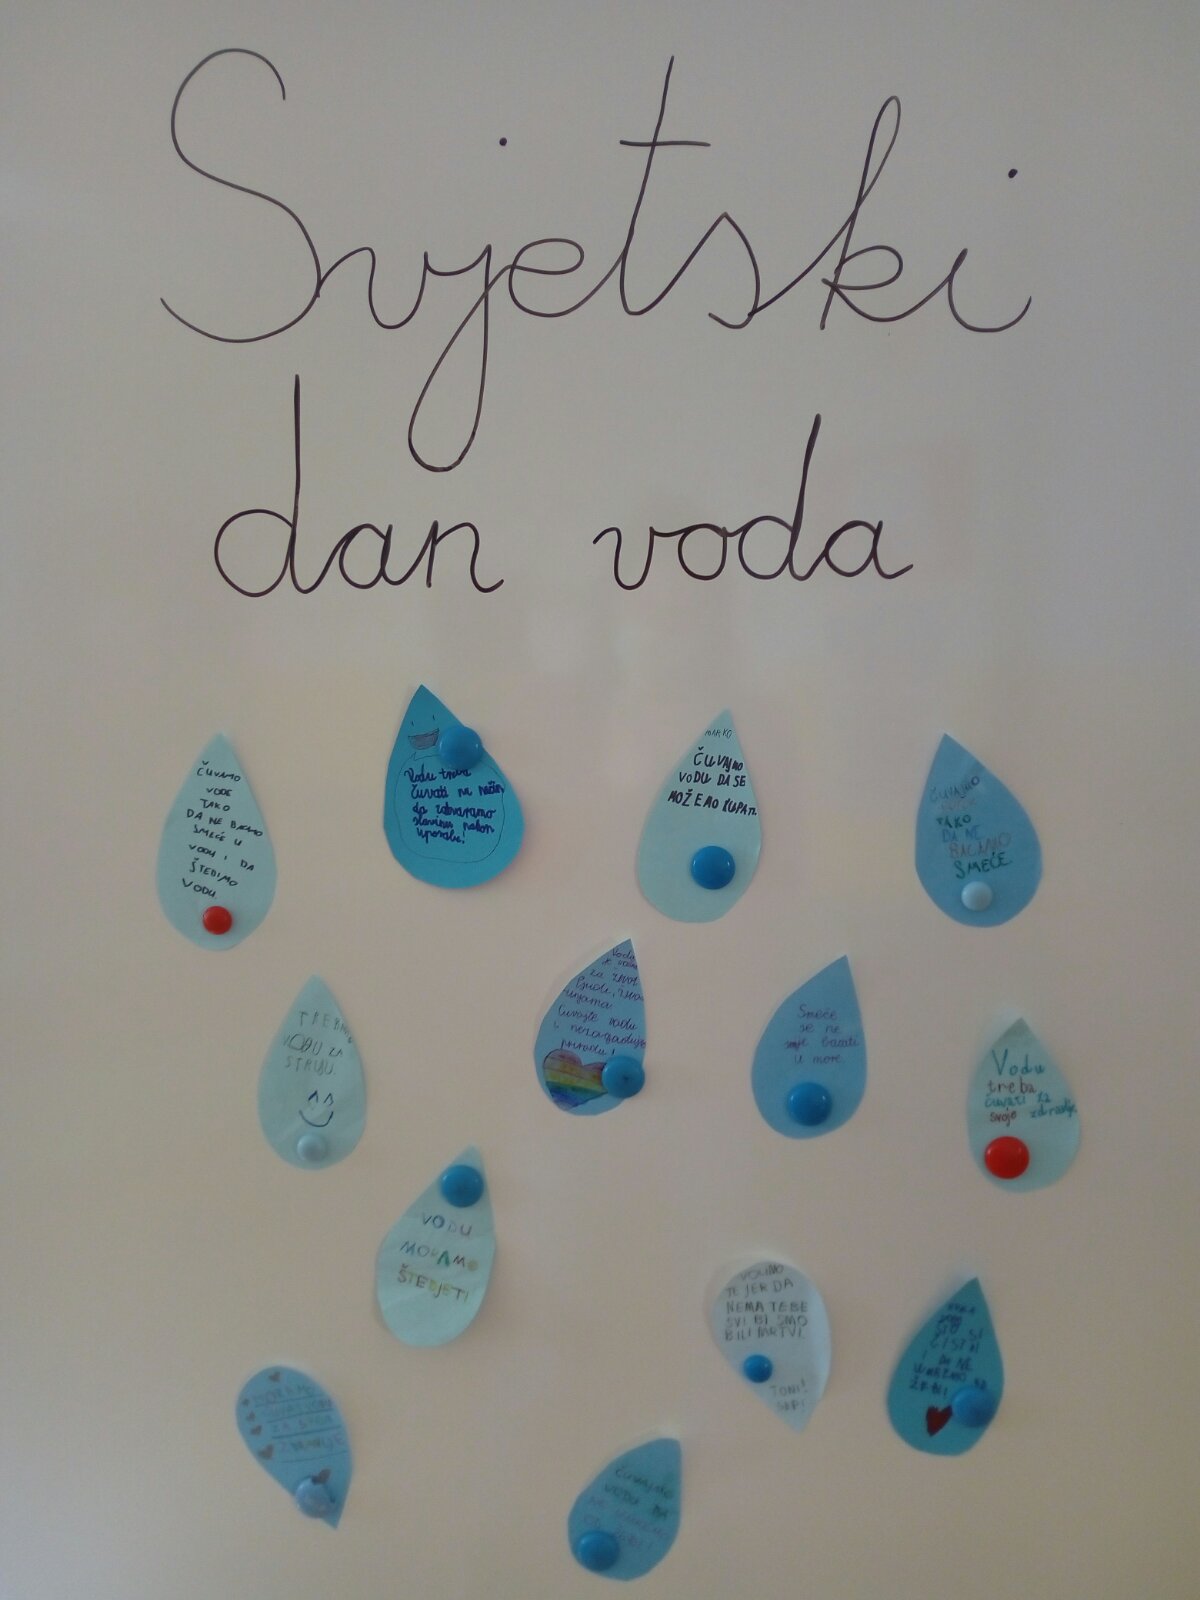 Svjetski
dan voda
ČUVAMO
VODE
TAKO
DA NE BACAMO
SMEĆE U
VODU I DA
ŠTEDIMO
VODU.
Vodu treba
čuvati na način
da zatvaramo
slavinu nakon
uporabe!
MARKO
ČUVAJMO
VODU DA SE
MOŽEMO KUPATI.
ČUVAJMO
TAKO
DA NE
BACAMO
SMEĆE
TREBAMO
VODU ZA
STRUJU.
Voda
je
za život
ljude,
Čuvajte vodu
i nezagađujte
prirodu!
Smeće
se ne
smije bacati
u more.
Vodu
treba
čuvati za
svoje zdravlje.
VODU
MORAMO
ŠTEDJETI
VOLIMO
TE JER DA
NEMA TEBE
SVI BI SMO
BILI MRTVI.
TONI!
ŠTO SI
ČISTA
I DA NE
UMREMO OD
ŽEĐI!
MORAMO
ČUVATI VODU
ZA
ZDRAVLJE
ČUVAJMO
VODU DA
NE UMREMO
OD ŽEĐI!